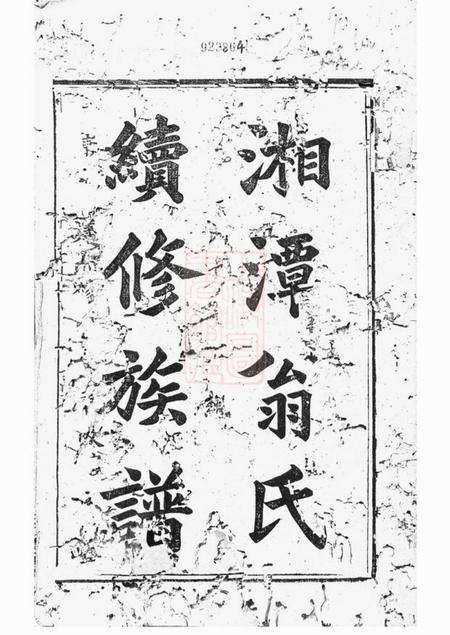 923864
湘潭翁氏
續修族譜